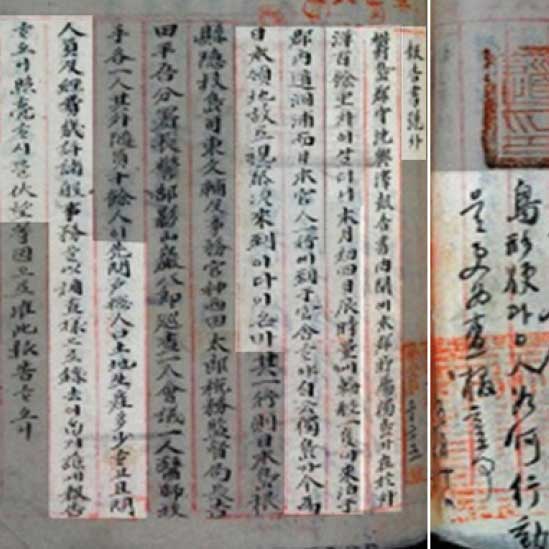 島形便과日人如何行動
을更爲査報ᄒᆞᆯ事
報告書號外
鬱島郡守沈興澤報告書內開에本郡所屬獨島가在於外
洋百餘里外이살더니本月初四日辰時量에輪船一隻이來泊于
郡內道洞浦而日本官人一行이到于官舍ᄒᆞ야自云獨島가今爲
日本領地故로視察次來到이다이온바其一行則日本島根
縣隱技島司東文輔及事務官神西田太郎稅務監督局長吉
田平吾分署長警部影山巖八郎巡査一人會議一人醫師技
手各一人其外隨員十餘人이先問戶摠人口土地生産多少ᄒᆞ고且問
人員及經費幾許諸般事務를以調査樣으로錄去이압기玆에報告
ᄒᆞ오니照亮ᄒᆞ시믈伏望等因으로准此報告ᄒᆞ오니